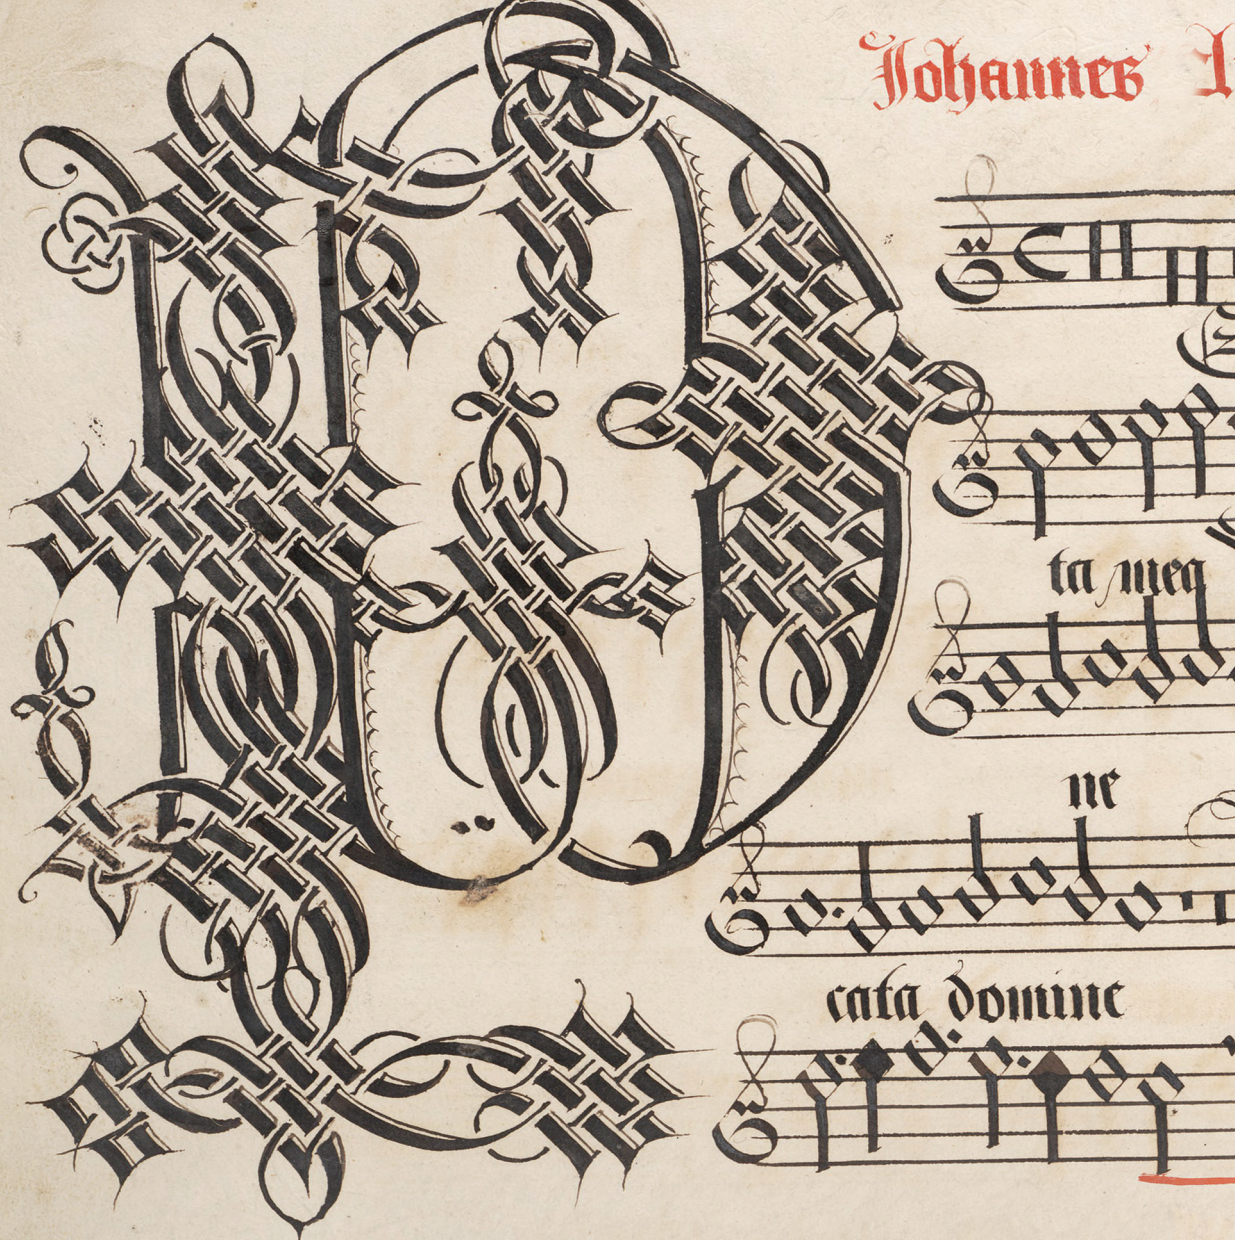 Johannes
ta mea
ne
cata domine